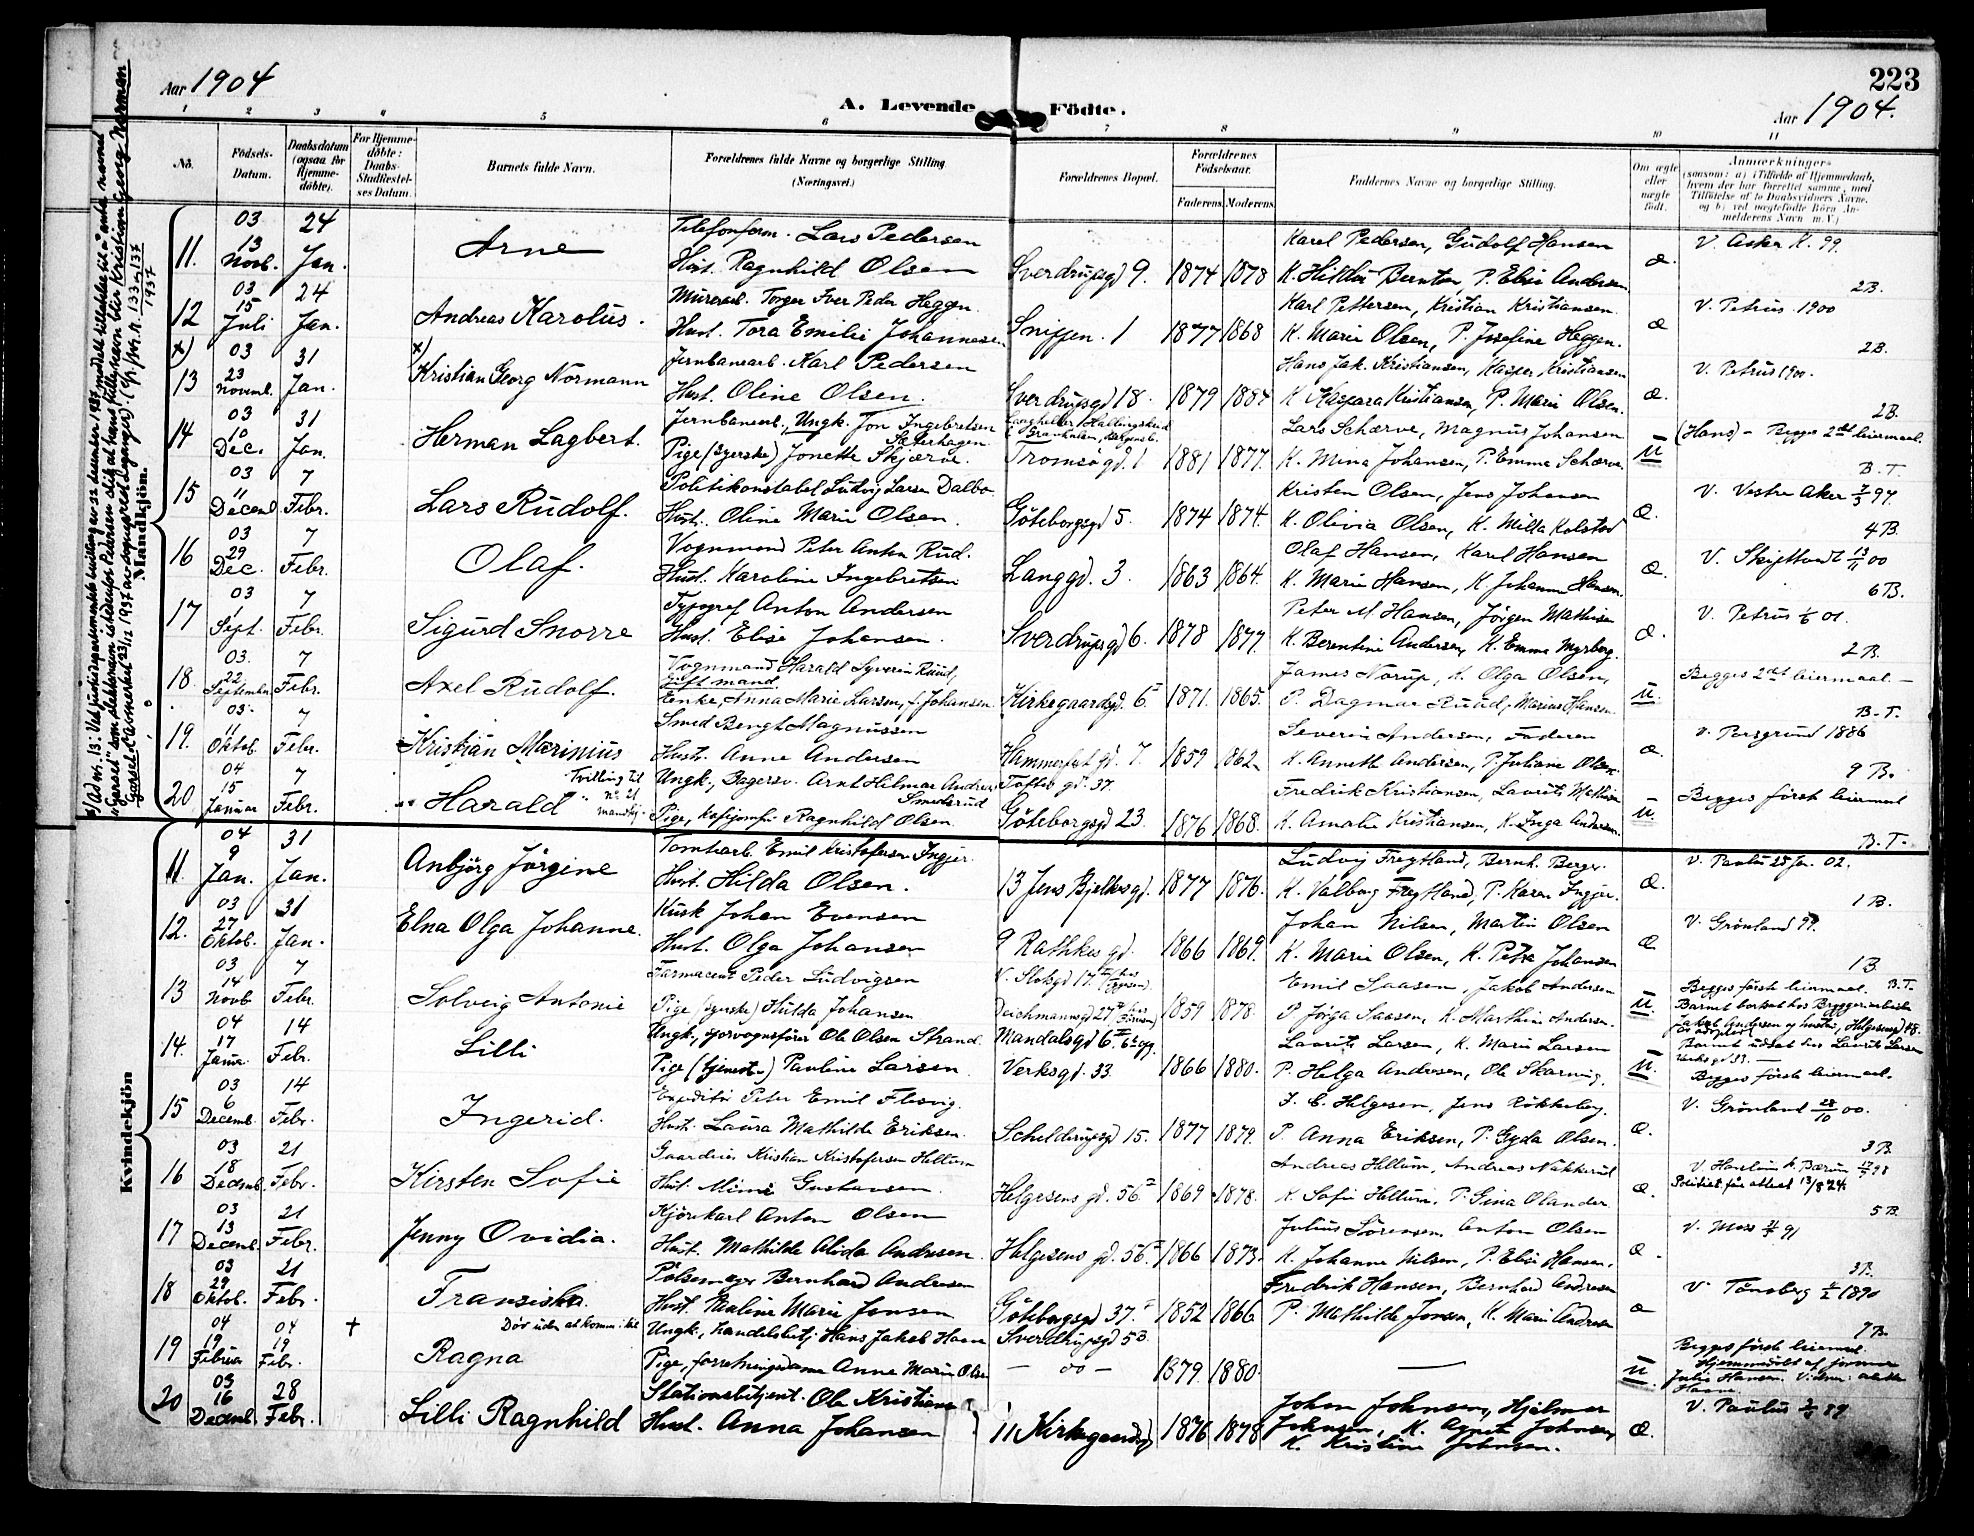 223
Aar 1904
A. Levende Födte.
Aar 1904.
1 2 3 4 5 6 7 8 9 10 11
No. Födsels-Datum. Daabsdatum (ogsaa for Hjemmedöbte). For Hjemmedöbte: Daabs-Stadfæstelses Datum. Barnets fulde Navn. Forældrenes fulde Navne og borgerlige Stilling. (Næringsvei.) Forældrenes Bopæl. Forældrenes Födselsaar. Faderens. Moderens. Faddernes Navne og borgerlige Stilling. Om ægte eller uægte födt. Anmærkninger
Mandkjön.
03 24 Telefonform. Lars Pedersen Karel Pedersen, Gudolf Hansen V. Asker K. 99.
11. 13 Novb. Jan. Arne Hust. Ragnhild Olsen Sverdrupsgd 9. 1874 1878 K. Hilda Berntsen, P. Elise Andersen æ 2B.
03 24 Murerarb. Torger Iver Peder Heggen Karl Pettersen, Kristian Kristiansen V. Petrus 1900
12 15 Juli Jan. Andreas Karolus. Hust. Tora Emilie Johannesen Snippen. 1 1877 1868 K. Marie Olsen, P. Josefine Heggen. æ 2B.
x) 03 31 x) Jernbanearb. Karl Pedersen Hans Jak. Kristiansen, Kasper Kristiansen V. Petrus 1900.
13 23 Novemb. Jan. Kristian Georg Normann Hust. Oline Olsen. Sverdrupsgd 18. 1879 1884 K. Kaspara Kristiansen, P. Marie Olsen. æ. 2B.
03 31 Jernbanearb., Ungk. Jon Ingebretsen Sæterhagen Lars Schærve, Magnus Johansen (Hans) - Begges 2det leiermaal.
14 10 Dec. Jan. Herman Lagbert. Pige (syerske) Jonette Skjærve. Tromsøgd. 1 1881 1877. K. Mina Johansen, P. Emma Schærve. U B.T.
03 7 Politikonstabel Ludvig Larsen Dalbo Kristen Olsen, Jens Johansen V. Vestre Aker 7/3 97.
15 11 Decemb. Febr. Lars Rudolf. Hust. Oline Marie Olsen. Göteborgsgd 5. 1874 1874. K. Olivia Olsen, K. Milla Kolstad æ. 4B.
03 7 Vognmand Peter Anton Rud. Olaf Hansen, Karel Hansen V. Skiptvedt 13/11 00
16 29 Dec. Febr. Olaf. Hust. Karoline Ingebretsen Langgd. 3. 1863 1864. K. Marie Hansen, K. Johanne Hansen. æ. 6B.
03 7 Typograf Anton Andersen Peter M. Hansen, Jørgen Mathisen V. Petrus 01.
17 1 Sept. Febr. Sigurd Snorre Hust. Elise Johansen. Sverdrupsgd 6. 1878 1877. K. Berentine Andersen, K. Emma Myrberg. æ. 2B.
03. 7 Vognmand Harald Syverin Ruud, gift mand James Norup, K. Olga Olsen, Begges 2det leiermaal.
18. 22 September Febr. Axel Rudolf. Enke, Anna Marie Larsen, f. Johansen. Kirkegaardsgd. 6 1871. 1865. P. Dagmar Ruud, Marius Hansen U. B.T.
03. 7 Smed Bengt Magnussen Severin Andersen, Faderen V. Porsgrund 1886
19. 11 Oktob. Febr. Kristian Marinius Hust. Anne Andersen Hammerfest gd. 7. 1859 1862. K. Annette Andersen, P. Juliane Olsen æ 9B.
04 7 Tvilling til no 21 mandkj. Ungk., Bagersv. Arnt Hilmar Andreas Smederud Toftes gd. 37. Fredrik Kristiansen, Laurits Mathisen Begges første leiermaal
20 15 Januar Febr. Harald Pige, kafejomfr. Ragnhild Olsen. Göteborgsgd 23. 1876 1868. K. Amalie Kristiansen, K. Inga Andersen. U. B.T.
Kvindekjön
04 31 Tomtearb. Emil Kristofersen Ingjer. Ludvig Freytland, Bernh. Berger. V. Paulus 25 Jan. 02.
11. 9 Jan. Jan. Anbjörg Jörgine Hust. Hilda Olsen. 13 Jens Bjelkesgd. 1877 1876. K. Valborg Freytland, P. Karen Ingjer. æ. 1B.
03 31 Kusk Johan Evensen Johan Nilsen, Martin Olsen V. Grønland 97.
12. 27 Oktob. Jan. Elna Olga Johanne. Hust. Olga Johansen 9 Rathkes gd. 1866 1869. K. Marie Olsen, K. Petra Johansen æ 1B.
03 7 Farmaceut Peder Ludvigsen V. Slotsgd 17. Emil Saasen, Jakob Andersen Begges første leiermaal. B.T.
13 14 Novb Febr. Solveig Antonie Pige (syerske) Hulda Johansen Deichmannsgd 27 1859 1878. P. Jørga Saasen, K. Marthine Andersen. U. Barnet bortsat hos Bryggeriarbeider Jakob Andersen og hustru, Helgesensgd 48.
04 14 Ungk., sporvognsfører Ole Olsen Strand Mandalsgd 6 Laurits Larsen, K. Marie Larsen Barnet udsat hos Laurits Larsen Verksgd. 33.
14. 17 Januar Febr. Lilli Pige (tjeneste) Pauline Larsen. Verksgd. 33 1866 1880. P. Helga Andersen, Ole Skarning. U. Begges første leiermaal.
03 14 Expeditör Peter Emil Flesvig. J. C. Helgesen, Jens Rökkeberg. V. Grønland 28/10 00.
15 6 Decemb. Febr. Ingerid. Hust. Laura Mathilde Eriksen. Schelderupsgd 15. 1877 1879. P. Anna Eriksen, P. Gyda Olsen. æ. 3B.
03 21 Gaardeier Kristian Kristofersen Hellum Andreas Hellum, Andreas Nakkerud V. Haslum k. Bærum 98
16 18 Decemb. Febr. Kirsten Sofie Hust. Mimi Gustavsen. Helgesens gd. 56 1869 1878. K. Sofie Hellum, P. Gina Olander. æ. Politiet får attest 13/8 24. 5B.
03 21 Kjörekarl Anton Olsen Julius Sörensen, Anton Olsen V. Moss 91
17 13 Decemb. Febr. Jenny Ovidia. Hust. Mathilde Alida Andresen. Helgesens gd. 56 1866 1873. K. Johanne Nilsen, P. Elise Hansen. æ. 3B.
03 21 Pølsemager Bernhard Andresen Fredrik Hansen, Bernhard Andresen V. Tönsberg 1890
18 29 Oktob. Febr. Fransiska. Hust. Pauline Marie Jensen Göteborgsgd 37. 1852 1866 P. Mathilde Jensen, K. Marie Andresen æ 9B.
04 04 + Död uden at komme til Ungk., handelsbetj. Hans Jakob Haave Sverdrupsgd 53. Begges første leiermaal.
19 19 Februar 19 Febr. Ragna Pige, forretningsdame Anne Marie Olsen — oo — 1879 1880. — U. Hjemmedöbt af jormor Julie Hansen.
03 28 Stationsbetjent. Ole Kristian Johan Johnsen, Hjalmar V. Paulus 89
20 16 Decemb. Febr. Lilli Ragnhild Hust. Anna Johansen 11 Kirkegaardsgd 1876 1878 Johnsen, K. Agnes Johnsen, æ.
K. Kristine Johnsen.